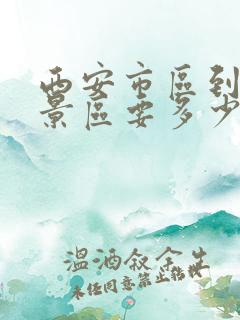 西安市區到
景區要多少
溫酒敘余生
未经同意禁止转载